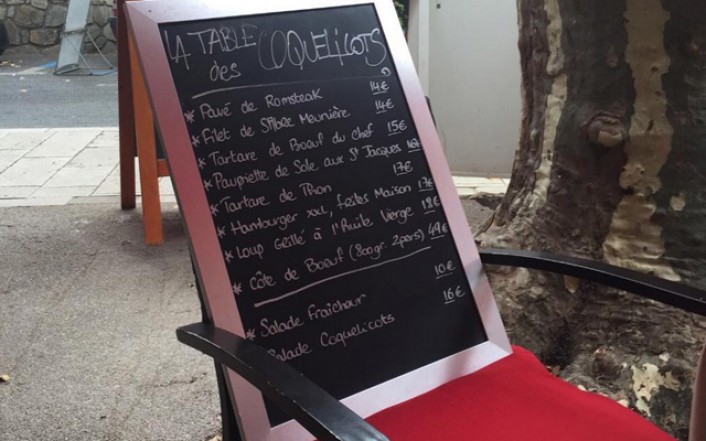 LA TABLE
des COQUELICOTS
* Pavé de Romsteak 14€
* Filet de Meunière 14€
* Tartare de Boeuf du chef 15€
* Paupiette de Sole aux St Jacques 16€
* Tartare de Thon 17€
* Hamburger xxl, frites Maison 17€
* Loup Grillé à l'Huile Vierge 18€
* Côte de Boeuf (800gr. 2pers) 49€
* Salade Fraîcheur 10€
* Salade Coquelicots 16€